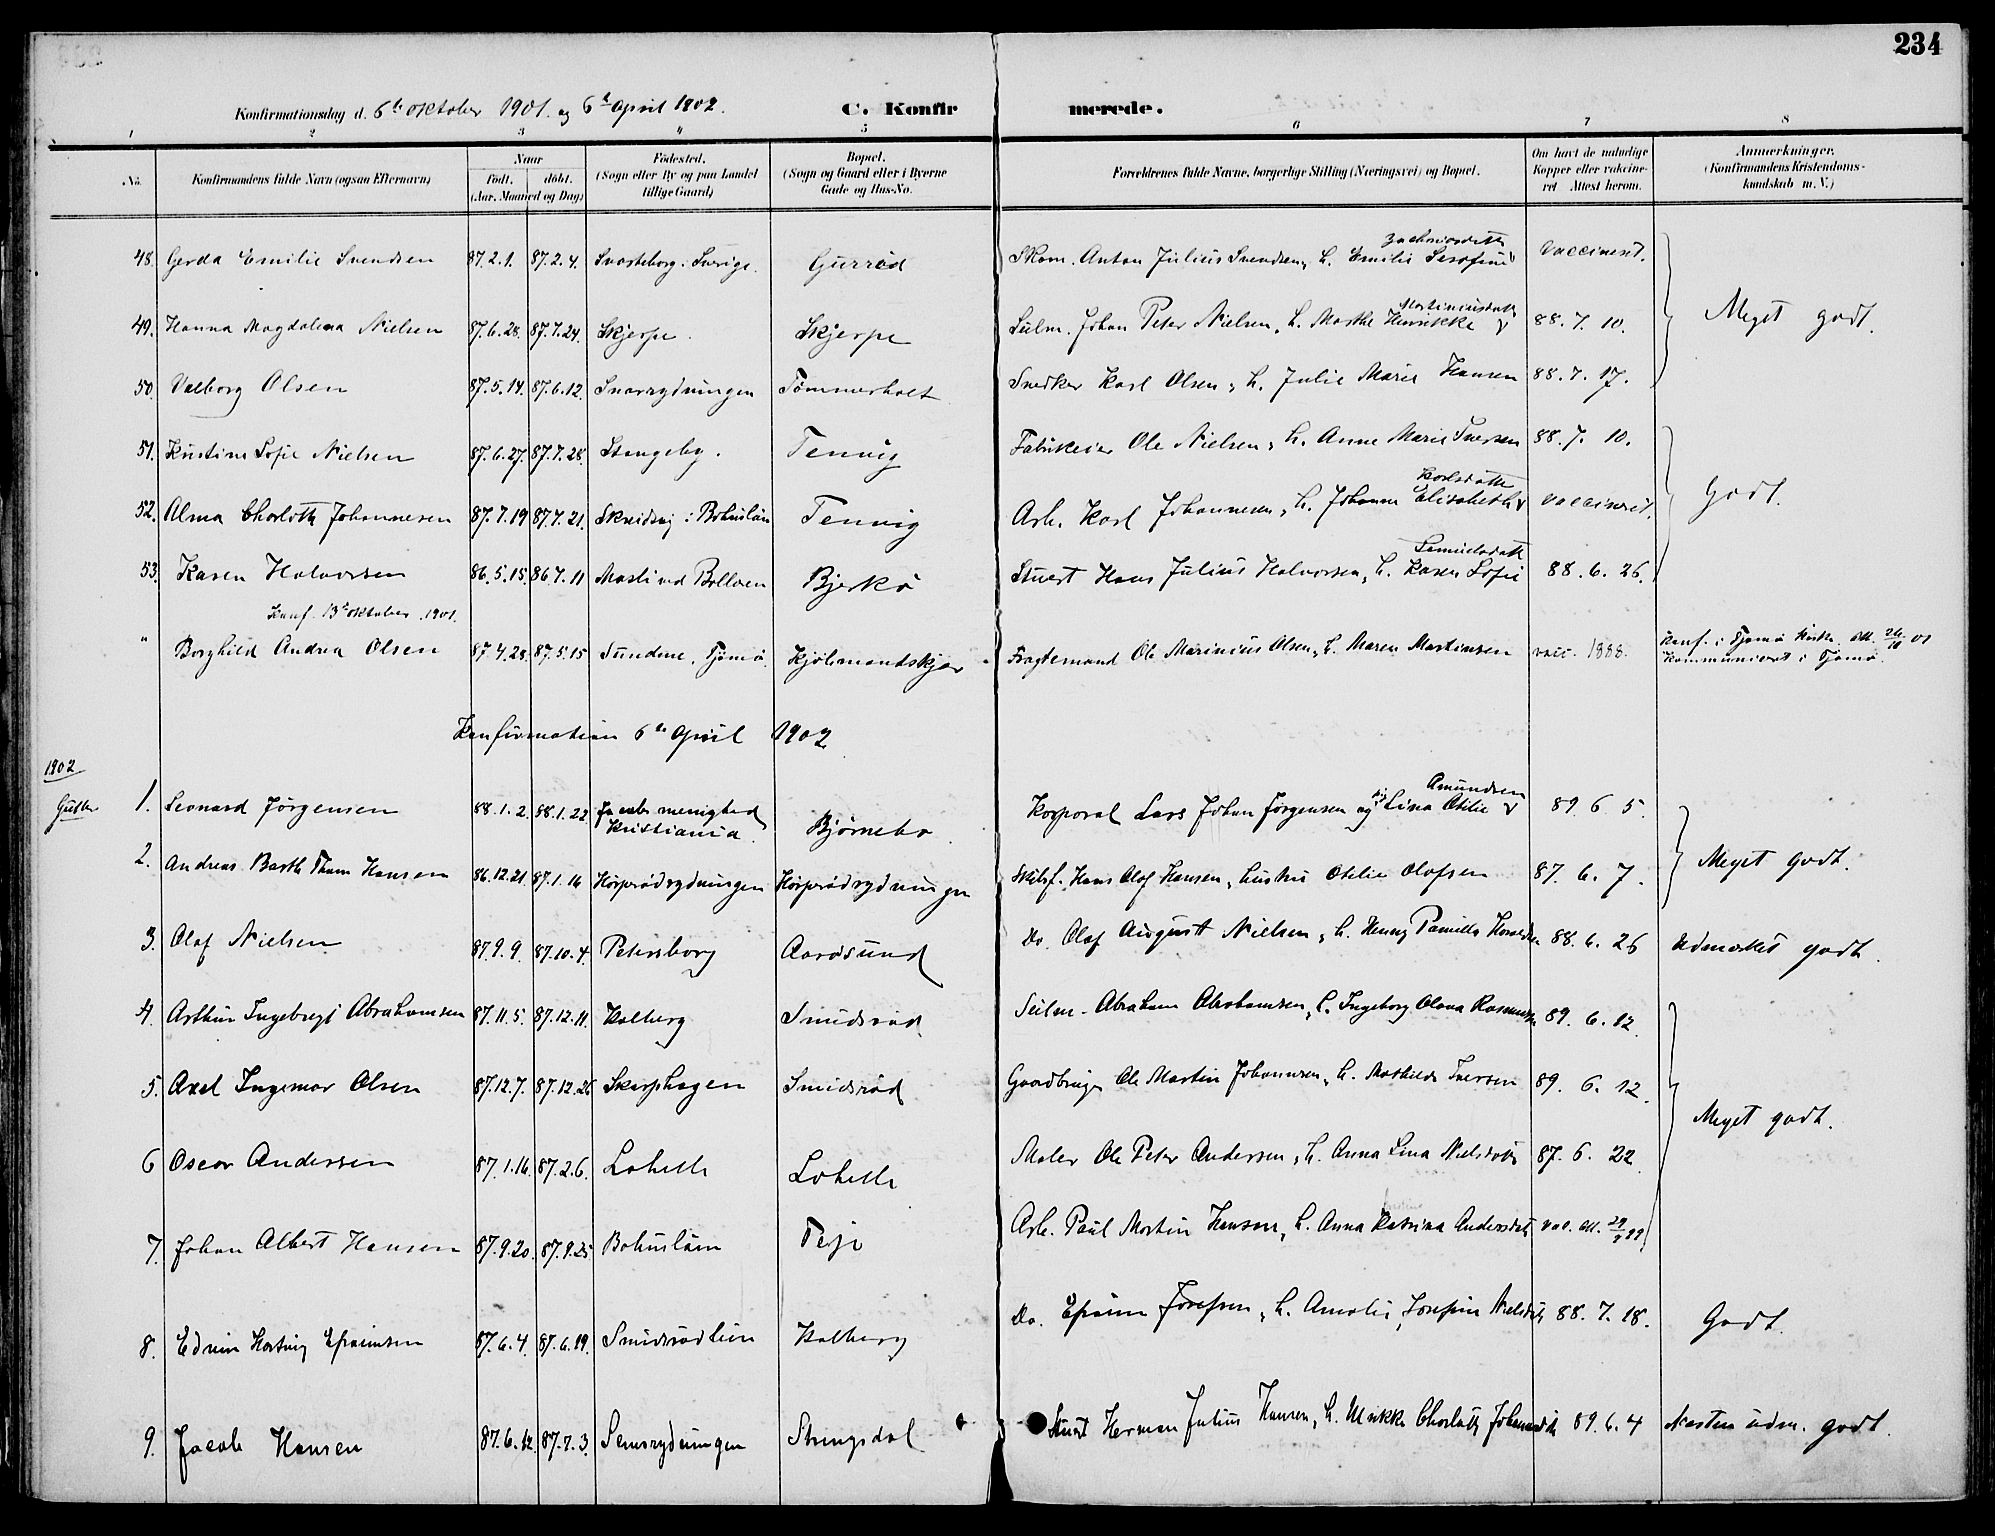 234
Konfirmationsdag d. 6te Oktober 1901. og 6te April 1902. C. Konfir merede.
1 2 3 4 5 6 7 8
No. Konfirmandens fulde Navn (ogsaa Efternavn) Naar født, døbt. (Aar, Maaned og Dag) Fødested. (Sogn eller By og paa Landet tillige Gaard) Bopæl. (Sogn og Gaard eller i Byerne Gade og Hus-No. Forældrenes fulde Navne, borgerlige Stilling (Næringsvei) og Bopæl. Om havt de naturlige Kopper eller vaccineret Attest herom. Anmærkninger. (Konfirmandens Kristendomskundskab m. V.)
48. Gerda Emilie Svendsen 87.2.1. 87.2.4. Svarteborg i Sverige. Gurrød Skom. Anton Julius Svendsen, h. Emilie Serafine Zachriasdatter vaccineret.
49. Hanna Magdalena Nielsen 87.6.28. 87.7.24. Skjerpe. Skjerpe Sølm. Johan Peter Nielsen, h. Marthe Henrikke Martiniusdatt 88.7.10. Meget godt.
50. Valborg Olsen 87.5.14. 87.6.12. Snarrydningen Tømmerholt Snedker Karl Olsen, h. Julie Marie Hansen 88.7.17.
51. Kristine Sofie Nielsen 87.6.27. 87.7.28. Stangeby. Tenvig Fabrikeier Ole Nielsen, h. Anne Marie Iversen 88.7.10.
52. Alma Charlotte Johannesen 87.7.19 87.7.21. i Bohuslän Tenvig Arb. Karl Johannesen, h. Johanne Elisabeth Karlsdatter vaccineret. Godt.
53. Karen Halvorsen 86.5.15. 86.7.11 ved Bolleren Bjerkø Stuert Hans Julius Halvorsen, h. Karen Sofie Samuelsdatt 88.6.26.
Konf. 13de Oktober 1901.
" Borghild Andrea Olsen 87.4.28. 87.5.15 Sundene, Tjømø. Kjøbmandskjær Fragtemand Ole Marinius Olsen, h. Maren Martinsen vacc. 1888. Konf. i Tjømø Kirke. Att. 26/10 01 Kommuniceret i Tjømø.
Konfirmation 6te April 1902
1902
Gutter 1. Leonard Jørgensen 88.1.2. 88.1.22. Jacobs menighed Kristiania. Bjørnebo Korporal Lars Johan Jørgensen og h. Lina Otilie Amundsen 89.6.5.
2. Andreas Barth Tham Hansen 86.12.21. 87.1.16 Hørprødrydningen Hørprødrydningen Skibsf. Hans Olaf Hansen, hustru Otilie Olafsen 87.6.7. Meget godt.
3. Olaf Nielsen 87.9.9. 87.10.4. Petersborg Aarøsund Do. Olaf August Nielsen, h. Henny Pamilla 88.6.26 Udmærket godt.
4. Arthur Ingebregt Abrahamsen 87.11.5. 87.12.11. Holberg Smidsrød Seilm. Abraham Abrahamsen, h. Ingeborg Olava Rasmussen 89.6.12.
5. Axel Ingemar Olsen 87.12.7. 87.12.26 Skarphagen Smidsrød Gaardbruger Ole Martin Johannesen, h. Mathilde Iversen 89.6.12.
Meget godt.
6 Oscar Andersen 87.1.16. 87.2.6. Lofterød Lofterød Maler Ole Peter Andersen, h. Anna Lina Nielsdatter 87.6.22.
7. Johan Albert Hansen 87.9.20. 87.9.25. Bohuslän Teje Arb. Paul Martin Hansen, h. Anna Katrina Andersdt vac. att.
8. Edvin Hartvig Efraimsen 87.6.4. 87.6.19. Smidsrødlien Holberg Do. Efraim Josefsen, h. Amalie Josefine Nielsdt 88.7.18. Godt.
9. Jacob Hansen 87.6.12. 87.7.3. Semsrydningen Strengsdal Stuert Herman Julius Hansen, h. Ulrikke Charlotte 89.6.4 Næsten udm. godt.